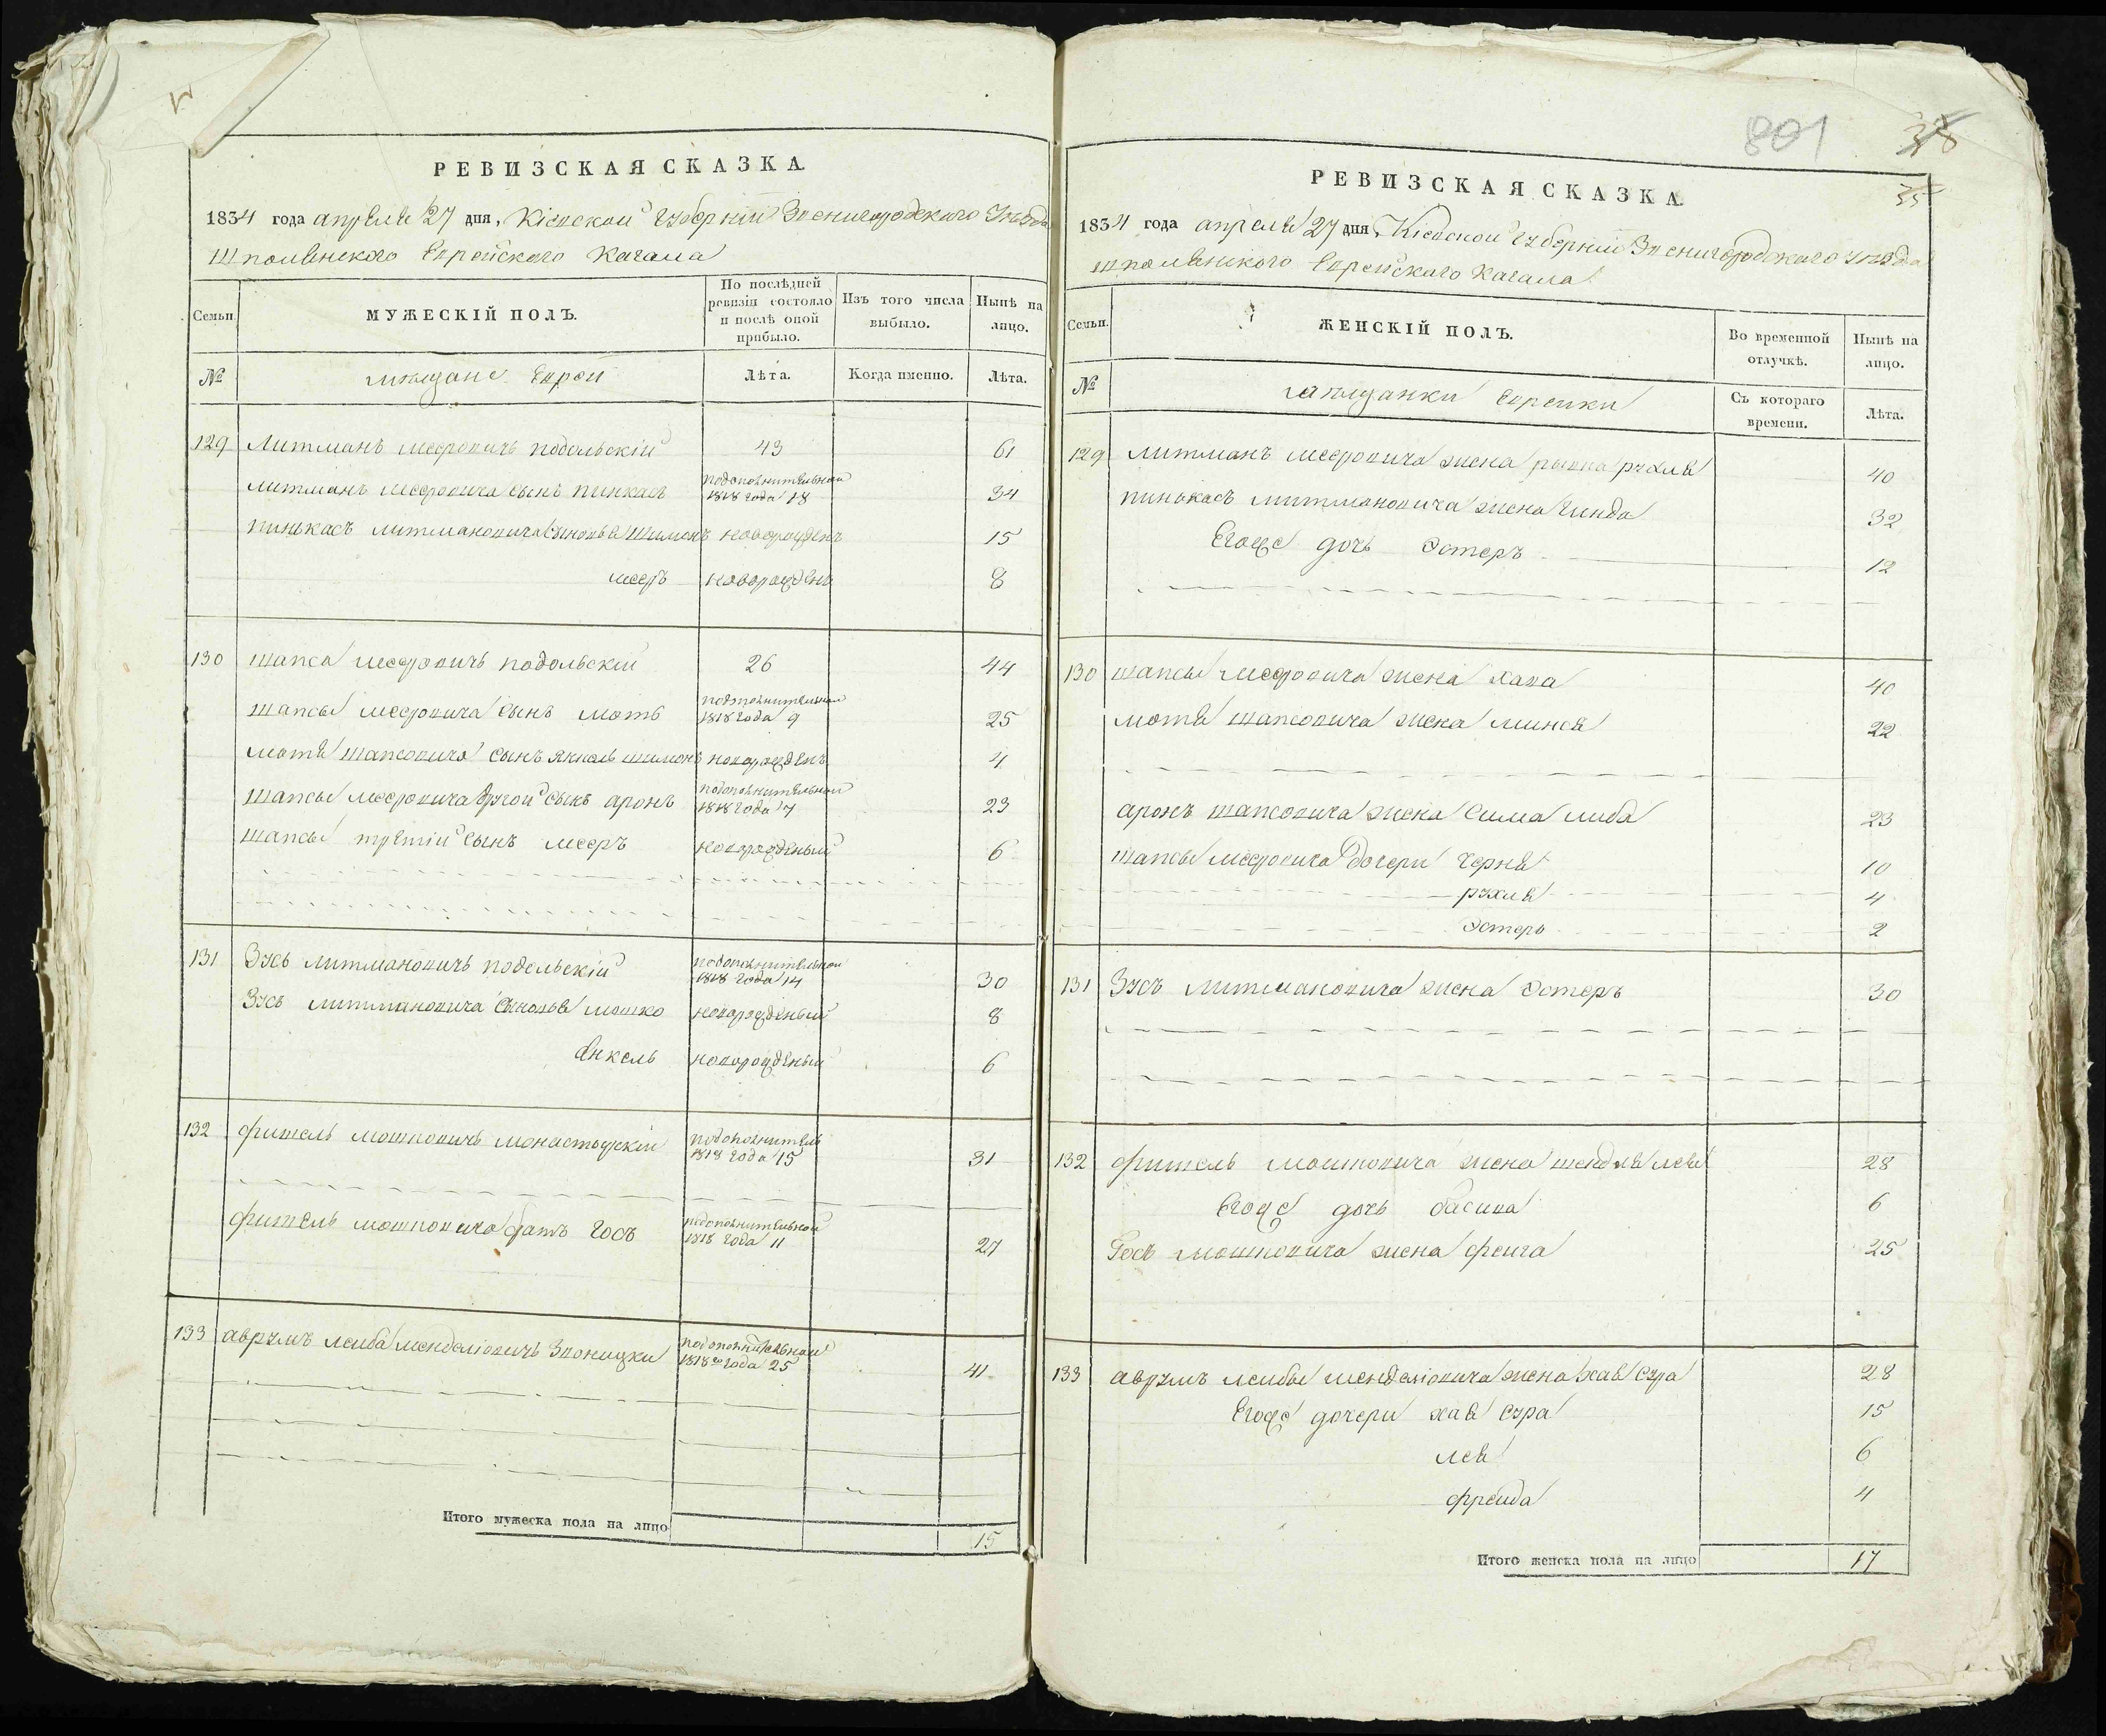 РЕВИЗСКАЯ СКАЗКА
1834 года апреля 27 дня, Кіевской губерніи Звенигородского Уезда
Шполянского Еврейского Кагала
Семьи.
МУЖЕСКІЙ ПОЛЪ.
По послѣдней ревизіи состояло и послѣ оной прибыло.
Изъ того числа выбыло.
Нынѣ на лицо.
№
мещане Евреи
Лѣта.
Когда именно.
Лѣта.
129 Литманъ мееровичъ подольскій 43 61
литманъ меєровича сынъ пинкасъ подополнительной 1818 года 18 34
пинькасъ литмановича сыновья шимонъ новорожденъ 15
меєръ новорожденъ 8
130 шапса меєровичъ подольскій 26 44
шапсы меєровича сынъ моть подополнительной 1818 года 9 25
мотя шапсовича сынъ янкель шимонъ новорожденъ 4
шапсы меєровича другой сынъ аронъ подополнительной 1818 года 7 23
шапсы третій сынъ меєръ новорожденый 6
131 Зусь литмановичъ подольскій подополнительной 1818 года 14 30
Зусь литмановича сыновья мошко новорожденый 8
Янкель новорожденый 6
132 фишель мошковичъ монастырскій подополнитель 1818 года 15 31
фишель мошковича братъ Госъ подополнительной 1818 года 11 27
133 аврумъ лейба менделіовичъ подополнительной 1818го года 25 41
Итого мужеска пола на лицо 15
801 38
35
РЕВИЗСКАЯ СКАЗКА
1834 года апреля 27 дня, Кіевской губерніи Звенигородского уезда
шполянского Еврейского Кагала
Семьи.
ЖЕНСКІЙ ПОЛЪ.
Во временной отлучкѣ.
Нынѣ на лицо.
№
мещанки Еврейки
Съ котораго времени.
Лѣта.
129 литманъ меєровича жена рывка рухля 40
пинькасъ литмановича жена гинда 32
Егоже дочь Эстеръ 12
130 шапсы меєровича жена хава 40
мотя шапсовича жена минся 22
аронъ шапсовича жена сима либа 23
шапсы меєровича дочери черня 10
рухля 4
Эстеръ 2
131 Зусъ литмановича жена Эстеръ 30
132 фишель мошковича жена шендля лея 28
Егоже дочь басива 6
Госъ мошковича жена фейга 25
133 аврумъ лейбы менделіовича жена хая сура 28
Егоже дочери хая сура 15
лея 6
фрейда 4
Итого женска пола на лицо 17